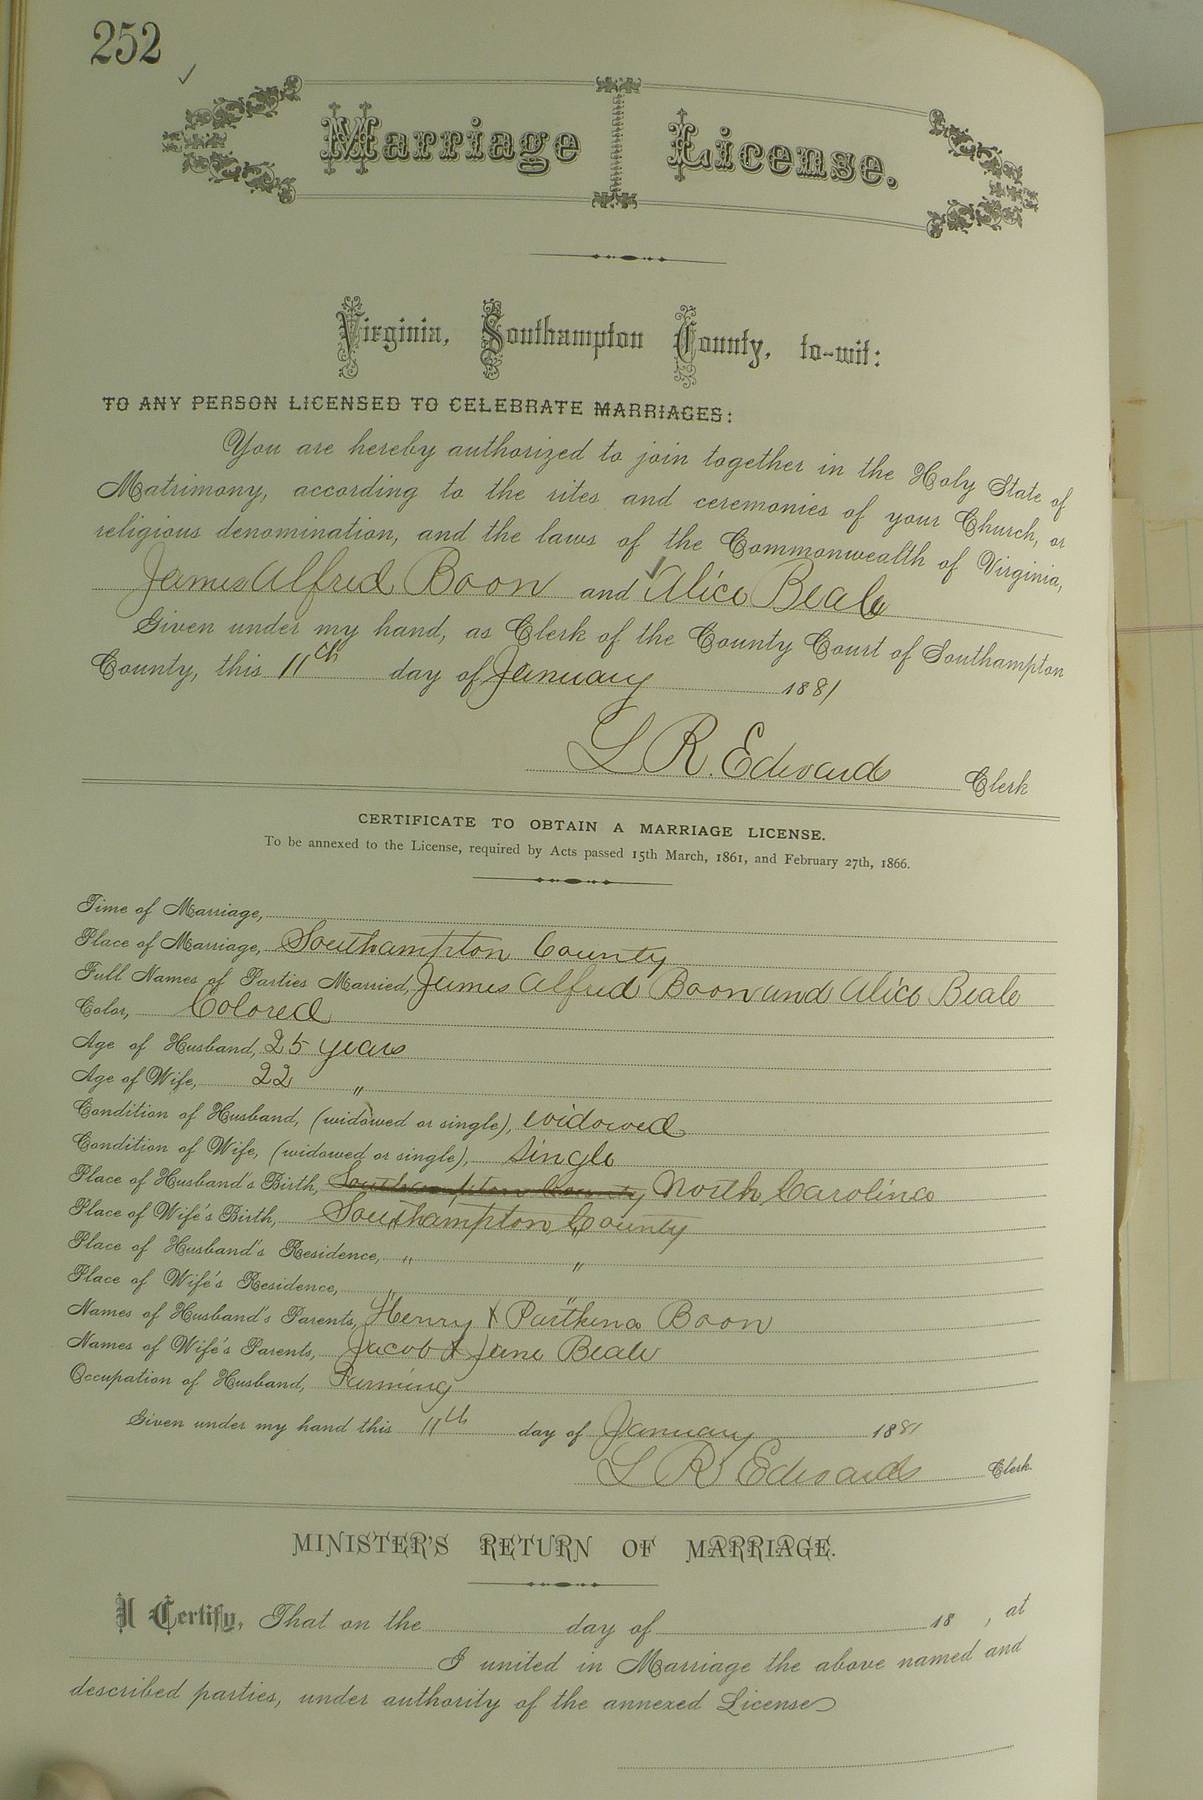 252
Marriage License.
Virginia, Southampton County, to-wit:
TO ANY PERSON LICENSED TO CELEBRATE MARRIAGES:
You are hereby authorized to join together in the Holy State of
Matrimony, according to the rites and ceremonies of your Church, or
religious denomination, and the laws of the Commonwealth of Virginia,
James Alfred Boon and Alice Beale
Given under my hand, as Clerk of the County Court of Southampton
County, this 11th day of January 1881
L R. Edwards Clerk
CERTIFICATE TO OBTAIN A MARRIAGE LICENSE.
To be annexed to the License, required by Acts passed 15th March, 1861, and February 27th, 1866.
Time of Marriage,
Place of Marriage, Southampton County
Full Names of Parties Married, James Alfred Boon and Alice Beale
Color, Colored
Age of Husband, 25 years
Age of Wife, 22 "
Condition of Husband, (widowed or single), widowed
Condition of Wife, (widowed or single), single
Place of Husband's Birth, Southampton County North Carolina
Place of Wife's Birth, Southampton County
Place of Husband's Residence, " "
Place of Wife's Residence, " "
Names of Husband's Parents, Henry & Parthena Boon
Names of Wife's Parents, Jacob & Jane Beale
Occupation of Husband, Farming
Given under my hand this 11th day of January 1881
L R Edwards Clerk.
MINISTER'S RETURN OF MARRIAGE.
I Certify, That on the day of 18 , at
I united in Marriage the above named and
described parties, under authority of the annexed License